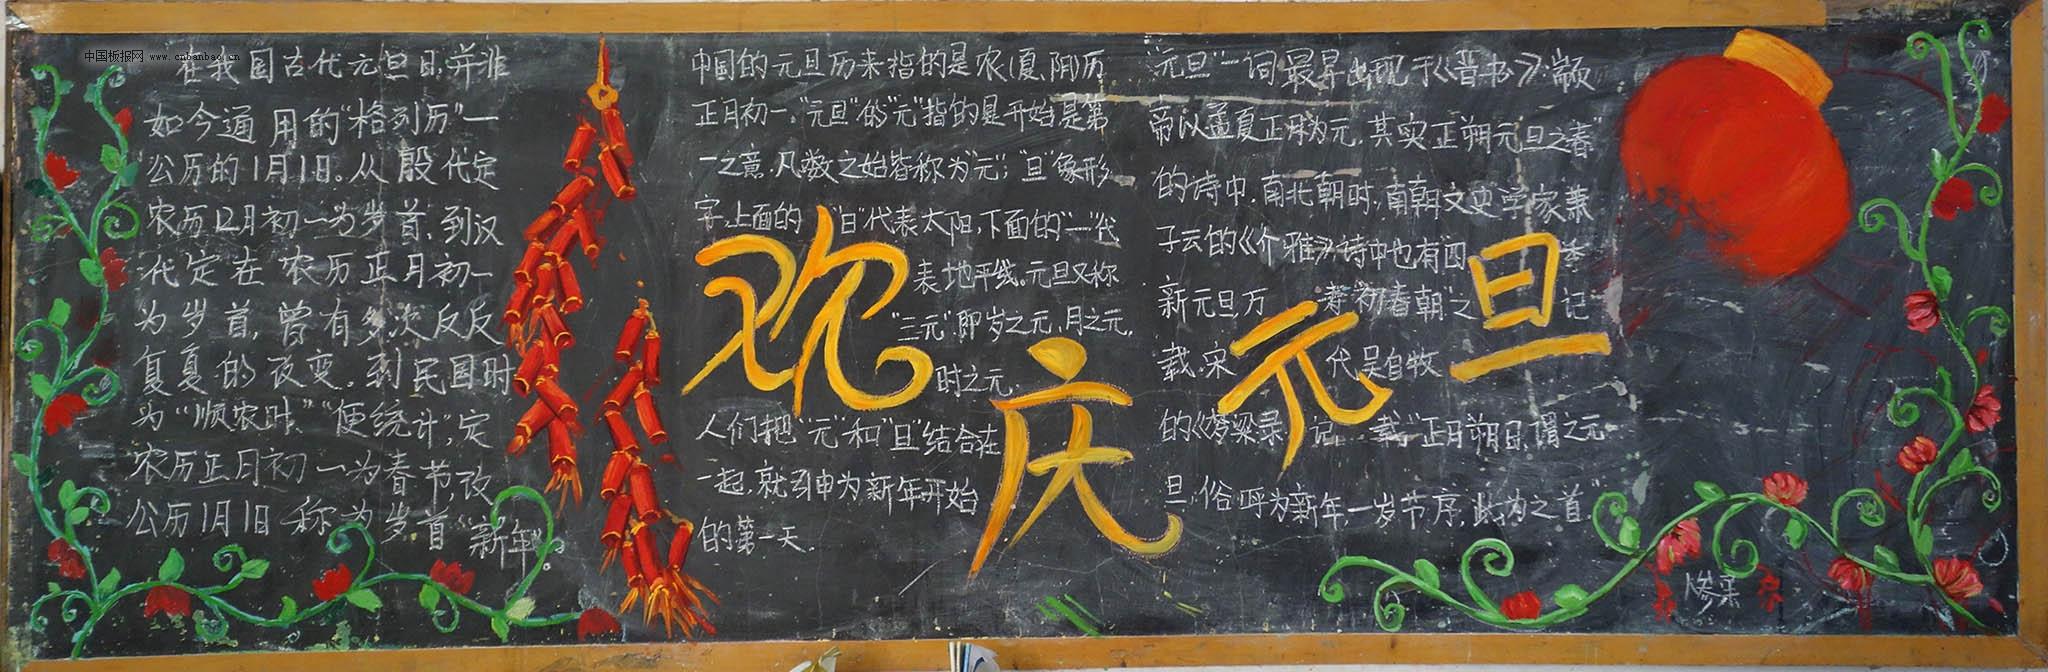 中国板报网 www.cnbanbao.cn
在我国古代元旦日,并非
如今通用的“格列历”一
公历的1月1日。从殷代定
农历12月初一为岁首,到汉
代定在农历正月初一
为岁首,曾有多次反反
复复的改变。到民国时
为“顺农时”“便统计”,定
农历正月初一为春节,改
公历1月1日称为岁首“新年”
中国的元旦历来指的是农(夏、阴)历
正月初一。“元旦”的“元”指的是开始是第
一之意,凡数之始皆称为“元”;“旦”象形
字,上面的“日”代表太阳,下面的“一”代
表地平线。元旦又称
“三元”即岁之元,月之元,
时之元,
人们把“元”和“旦”结合在
一起,就引申为新年开始
的第一天.
“元旦”一词最早出现于《晋书》:“颛
帝以孟夏正月为元,其实正朔元旦之春”
的诗中,南北朝时,南朝文史学家萧
子云的《介雅》诗中也有“四季
新元旦万寿初春朝”之记
载,宋代吴自牧
的《梦梁录》记载:“正月朔日,谓之元
旦,俗呼为新年,一岁节序,此为之首”
欢庆元旦